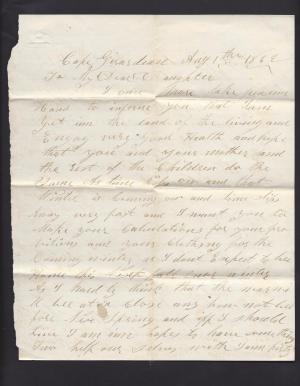 Cape Girardeau Aug 1th 1862
To My Dear Daughter
I once more take pen in
Hand to informe you that I am
yet inn the land of the living and
Enjoy very Good Health and hope
that you and your mother and
the rest of the Children do the
Same As time on and that
Winter is Coming on and time slips
Away very fast and I want you to
Make your Calculations for your pro
visions and your Clothing for the
Coming winter as I dont Expect to bee
Home this fall winter
As I hard to think that the warr
bee at a Close any how not be
fore Next Spring and iff I should
live I am inn hopes to have something
Two help our selves with I am